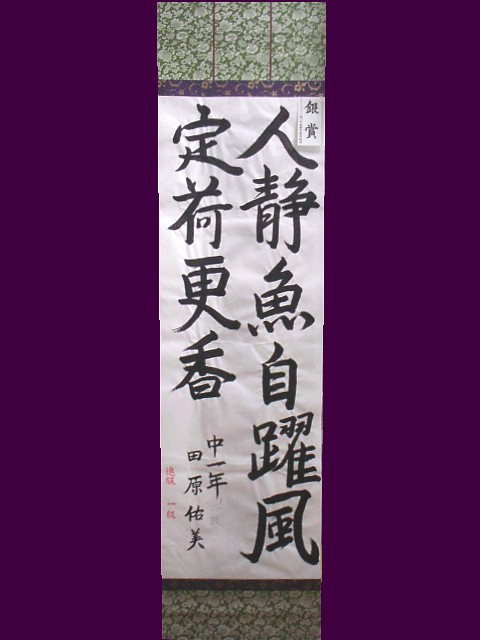 銀賞
人静魚自躍風
定荷更香
中一年
田原佑美
進級 一級